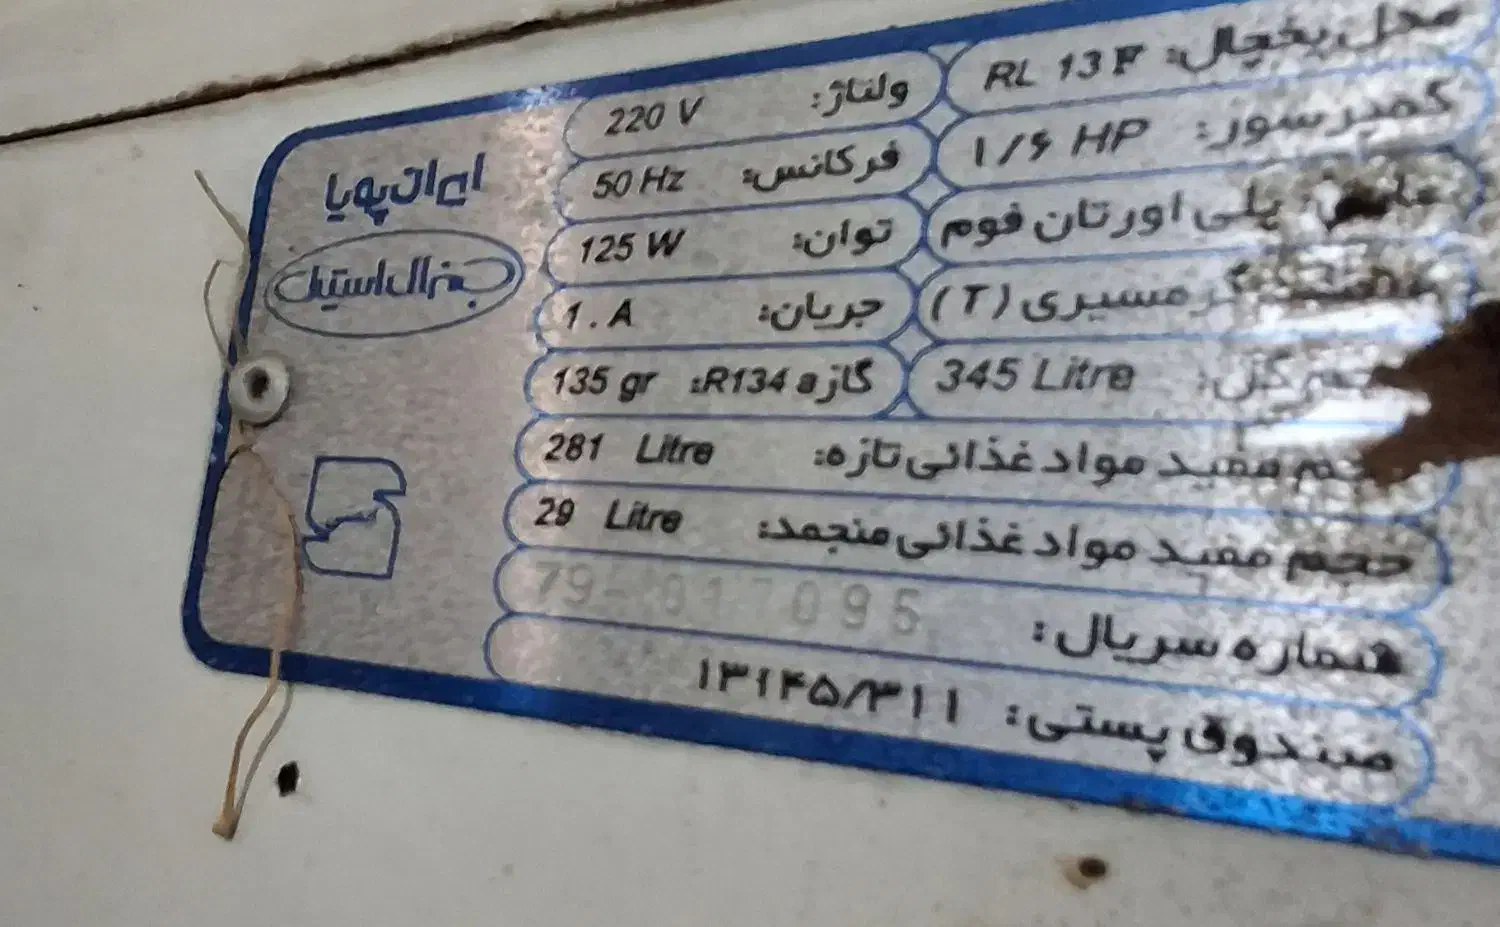 ایران پویا
جنرال استیل
مدل یخچال: RL 13 F
ولتاژ: 220 V
کمپرسور: ۱/۶ HP
فرکانس: 50 Hz
عایق: پلی اورتان فوم
توان: 125 W
گرمسیری (T)
جریان: 1.A
حجم کل: 345 Litre
گاز R134 a: 135 gr
حجم مفید مواد غذائی تازه: 281 Litre
حجم مفید مواد غذائی منجمد: 29 Litre
شماره سریال: 79- 017095
صندوق پستی: ۱۳۴۴۵/۳۱۱